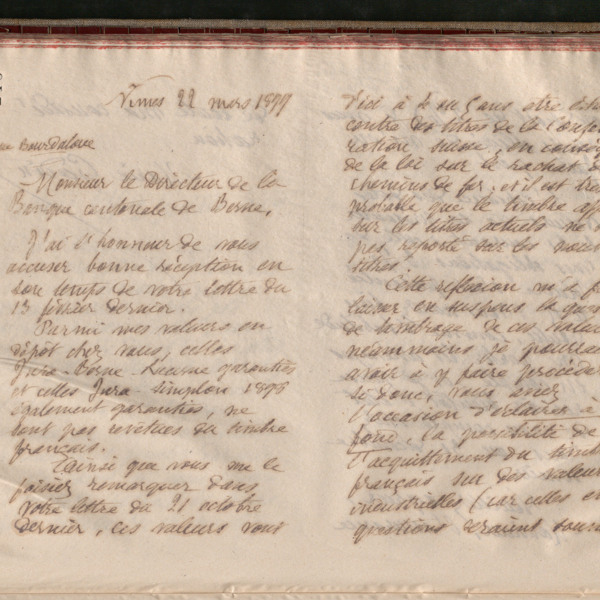 Nîmes 22 mars 1899
rue Bourdaloue
Monsieur le Directeur de la
Banque cantonale de Berne,
J'ai l'honneur de vous
accuser bonne réception en
son temps de votre lettre du
13 février dernier.
Parmi mes valeurs en
dépôt chez vous, celles
Jura-Berne-Lucerne garanties
et celles Jura-Simplon 1898
également garanties, ne
sont pas revêtues du timbre
français.
Ainsi que vous me le
faisiez remarquer dans
votre lettre du 21 octobre
dernier, ces valeurs vont
d'ici à 4 ou 5 ans être
contre des titres de la
ration suisse, en
de la loi sur le rachat
chemins de fer, et il est
probable que le timbre
sur les titres actuels ne
pas reporté sur les
titres.
Cette réflexion m'a
laisser en suspens la
de timbrage de ces
néanmoins je
avoir à y faire procéder
si donc, vous aviez
l'occasion d'éclaircir à
fond, la possibilité de
l'acquittement du
français sur des
industrielles (car celles en
questions seraient